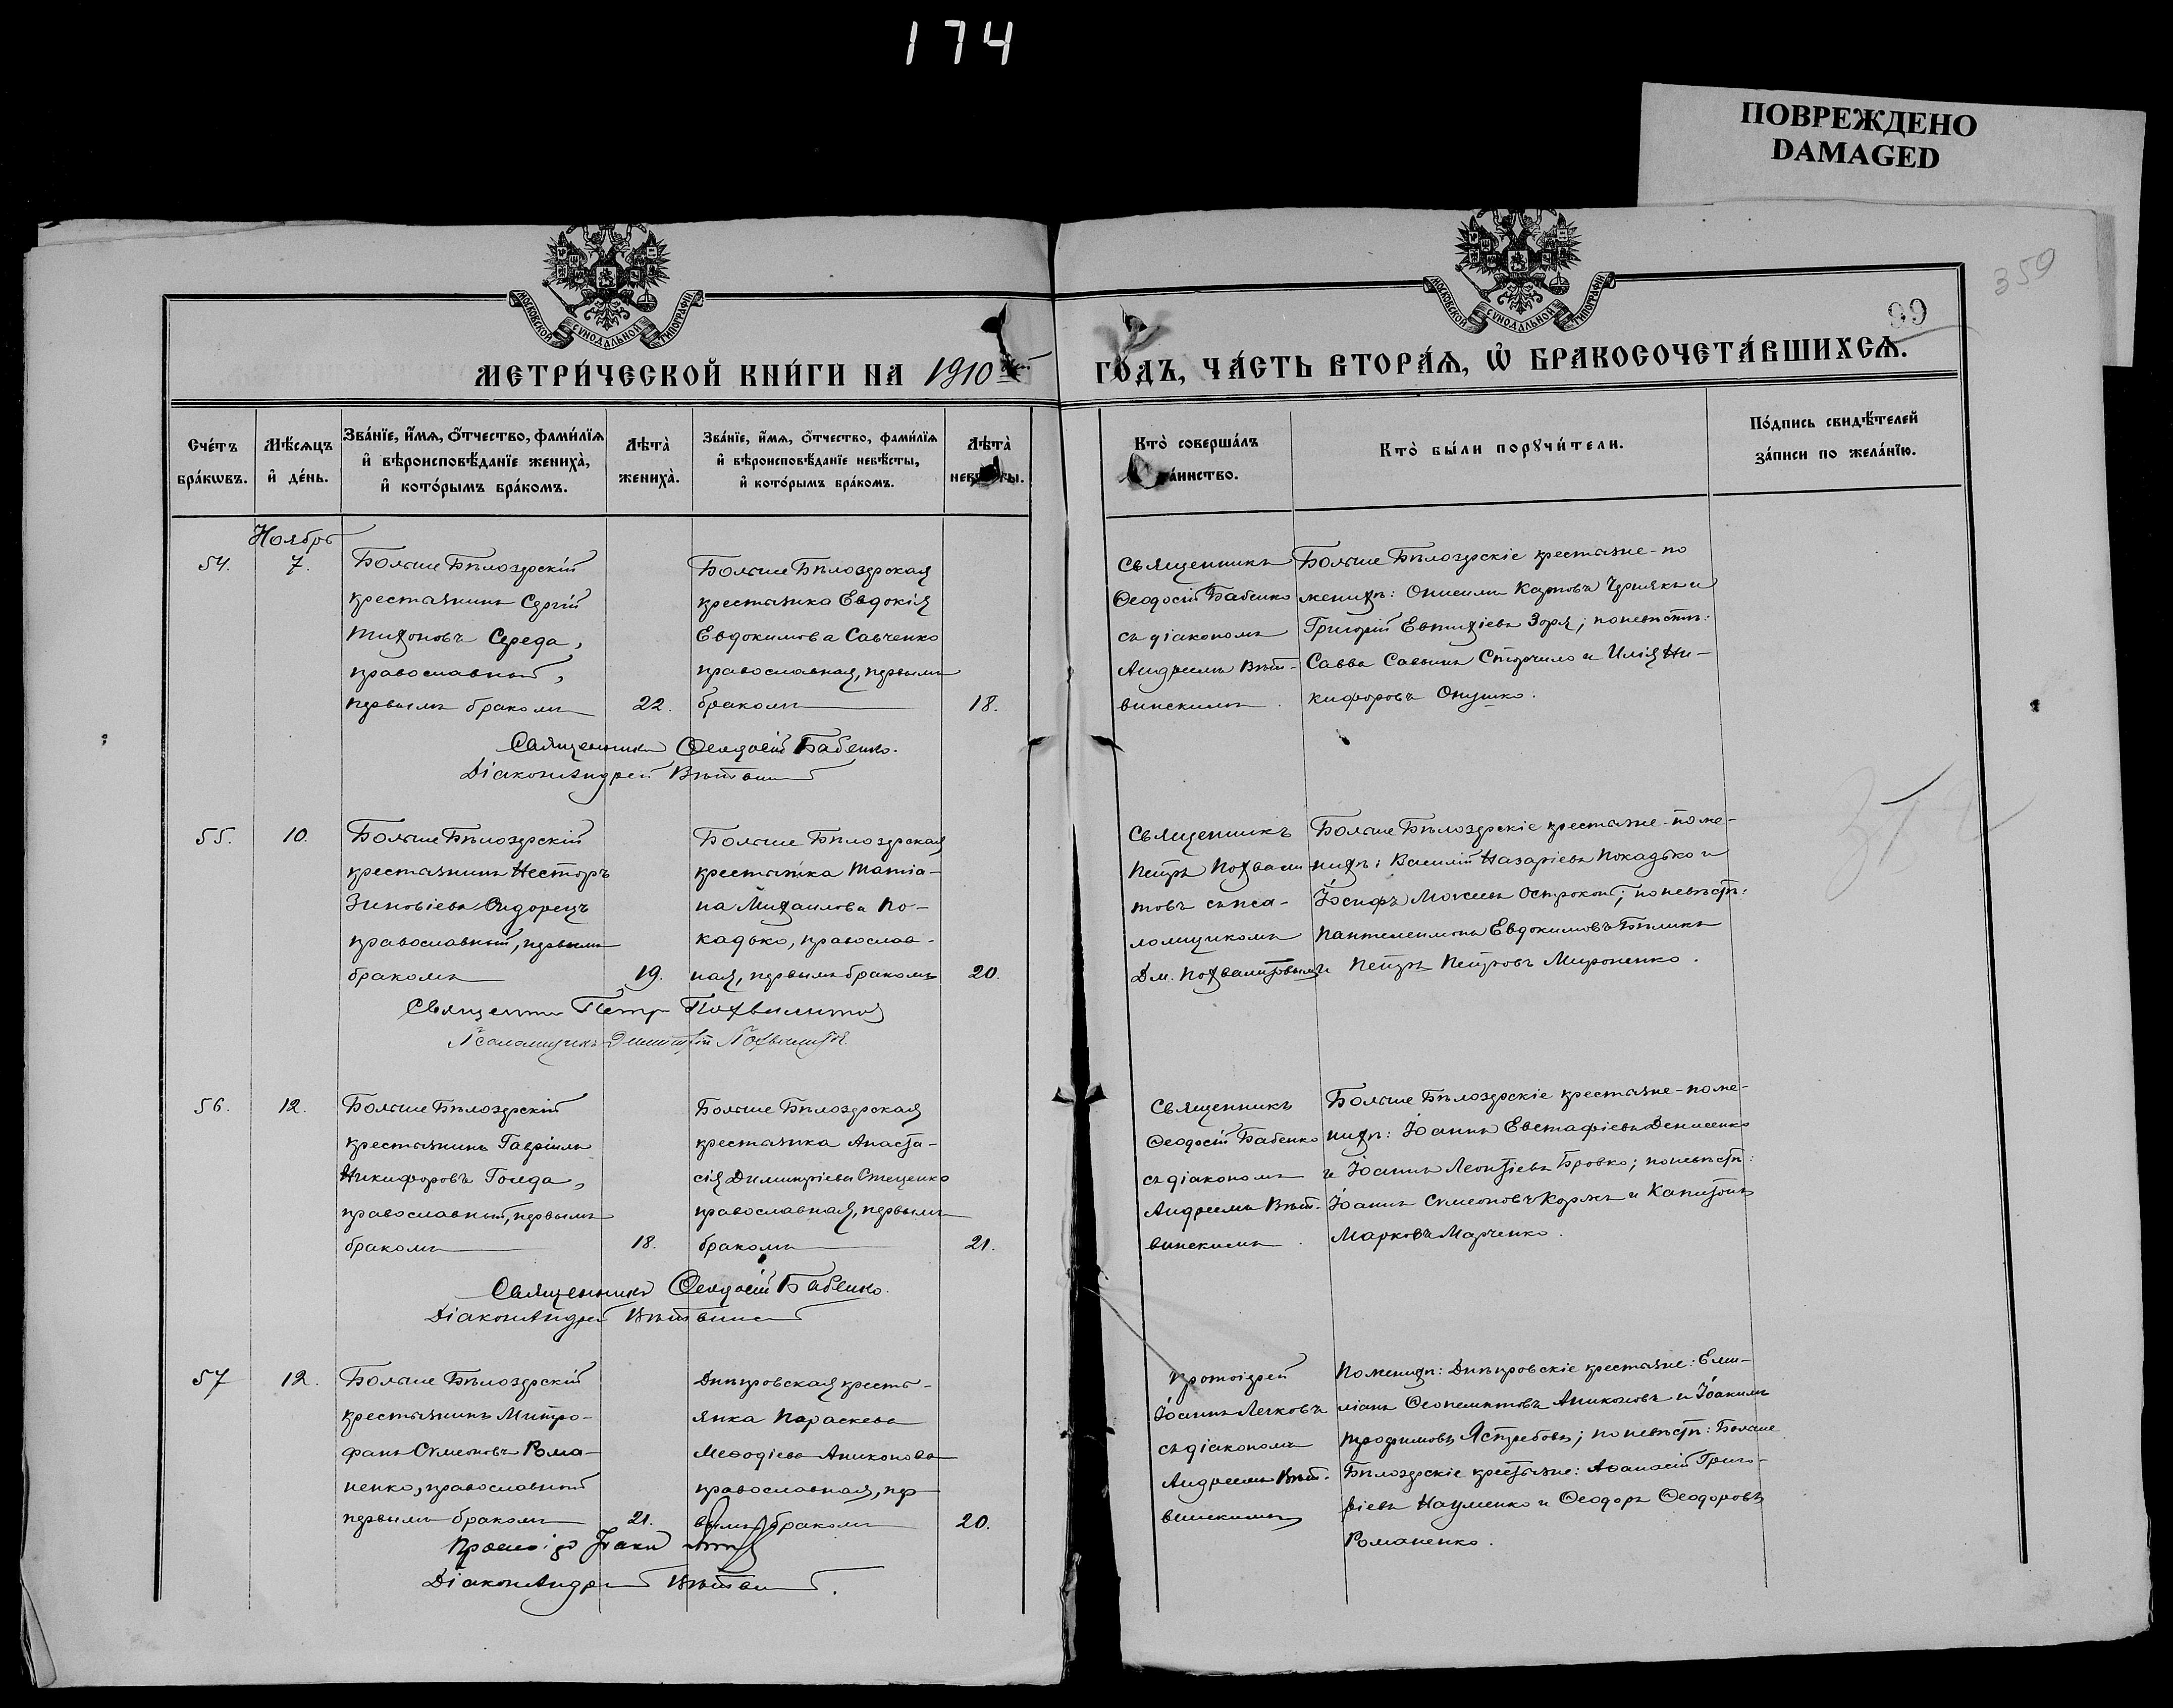 174
ПОВРЕЖДЕНО
DAMAGED
359
99
МОСКОВСКОЙ СѴНОДАЛЬНОЙ ТИПОГРАФІИ
МОСКОВСКОЙ СѴНОДАЛЬНОЙ ТИПОГРАФІИ
МЕТРИ́ЧЕСКОЙ КНИ́ГИ НА 1910
ГО́ДЪ, ЧА́СТЬ ВТОРА́Ѧ, Ѡ҆ БРАКОСОЧЕТА́ВШИХСѦ.
Сче́тъ бра́кѡвъ.
Мѣ́сѧцъ и҆ де́нь.
Зва́нїе, и҆́мѧ, ѻ҆́тчество, фами́лїѧ и҆ вѣроисповѣ́данїе жениха̀, и҆ кото́рымъ бра́комъ.
Лѣта̀ жениха̀.
Зва́нїе, и҆́мѧ, ѻ҆́тчество, фами́лїѧ и҆ вѣроисповѣ́данїе невѣ́сты, и҆ кото́рымъ бра́комъ.
Лѣта̀
Кто̀ соверша́лъ
Кто̀ бы́ли порꙋчи́тели.
По́дпись свидѣ́телей за́писи по жела́нїю.
Ноябрь
54.
7.
Больше Бѣлозерскій
крестьянинъ Сергій
Тихоновъ Середа,
православный,
первымъ бракомъ
22.
Больше Бѣлозерская
крестьянка Евдокія
Евдокимова Савченко
православная, первымъ
бракомъ
18.
Священникъ
Ѳеодосій Бабенко
съ діакономъ
Андреемъ Вит-
винскимъ.
Больше Бѣлозерскіе крестьяне - по
жениху: Онисимъ Карповъ Чернякъ и
Григорій Евтихіевъ Зоря; по невѣстѣ:
Савва Саввинъ Сторчило и Илія Ни-
кифоровъ Онушко.
Священникъ Ѳеодосій Бабенко.
Діаконъ Андрей
55.
10.
Больше Бѣлозерскій
крестьянинъ Несторъ
Зиновіевъ Сидорецъ
православный, первымъ
бракомъ
19.
Больше Бѣлозерская
крестьянка Татіа-
на Михаилова По-
кадько, православ-
ная, первымъ бракомъ
20.
Священникъ
Петръ Похвали-
товъ съ пса-
ломщикомъ
Дм. Похвалитовымъ
Больше Бѣлозерскіе крестьяне - по же-
ниху: Василій Назаріевъ Покадько и
Іосифъ Моисеевъ Острокопъ; по невѣстѣ:
Пантелеимонъ Евдокимовъ Бѣликъ
и Петръ Петровъ Мироненко.
Священникъ Петръ Похвалитовъ
Псаломщикъ Димитрій Похвалитовъ
56.
12.
Больше Бѣлозерскій
крестьянинъ Гавріилъ
Никифоровъ Гонда,
православный, первымъ
бракомъ
18.
Больше Бѣлозерская
крестьянка Анаста-
сія Димитріева Стеценко
православная, первымъ
бракомъ
21.
Священникъ
Ѳеодосій Бабенко
съ діакономъ
Андреемъ Вит-
винскимъ.
Больше Бѣлозерскіе крестьяне - по же-
ниху: Іоаннъ Евстафіевъ Денисенко
и Іоаннъ Леонтіевъ Бровко; по невѣстѣ:
Іоаннъ Сѵмеоновъ Коржъ и Капитонъ
Марковъ Марченко.
Священникъ Ѳеодосій Бабенко.
Діаконъ Андрей
57
12.
Больше Бѣлозерскій
крестьянинъ Митро-
фанъ Сѵмеоновъ Рома-
ненко, православный
первымъ бракомъ
21.
Днѣпровская кресть-
янка Параскева
Меѳодіева Аниконова
православная, пер-
вымъ бракомъ
20.
Протоіерей
Іоаннъ Легковъ
съ діакономъ
Андреемъ Вит-
винскимъ
По жениху: Днѣпровскіе крестьяне: Еми-
ліанъ Ѳеопемптовъ Аниконовъ и Іоакимъ
Трофимовъ Ястребовъ; по невѣстѣ: Больше
Бѣлозерскіе крестьяне: Аѳанасій Григо-
ріевъ Науменко и Ѳеодоръ Ѳеодоровъ
Романенко.
Діаконъ Андрей